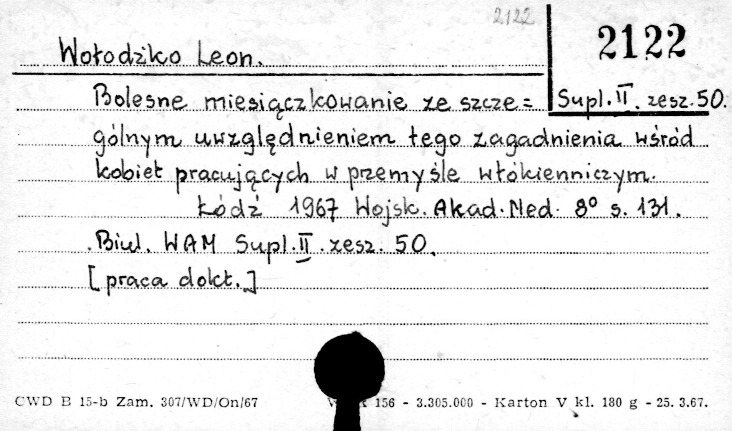 2122
2122
Wołodźko Leon.
Bolesne miesiączkowanie ze szcze=
Supl. II. zesz. 50.
gólnym uwzględnieniem tego zagadnienia wśród
kobiet pracujących w przemyśle włókienniczym.
Łódź 1967 Wojsk. Akad. Med. 8° s. 131.
Biul. WAM Supl. II zesz. 50.
[praca dokt.]
CWD B 15-b Zam. 307/WD/On/67
156 - 3.305.000 - Karton V kl. 180 g - 25. 3.67.